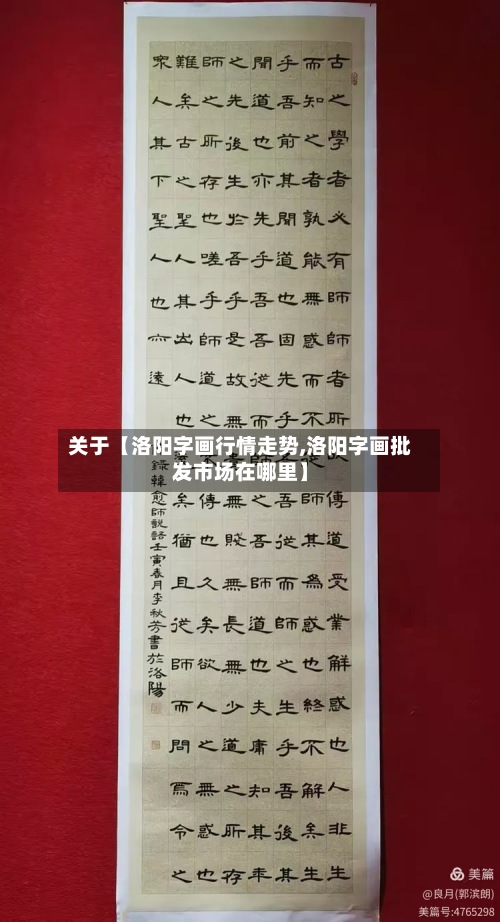 古之學者必有師師者所以傳道受業解惑也人非生
而知之者孰能無惑而不從師其為惑也終不解矣生
乎吾前其聞道也固先乎吾從而師之生乎吾後其
聞道也亦先乎吾吾從而師之吾師道也夫庸知其年
之先後生於吾乎是故無賤無長無少道之所存
師之所存也嗟乎師道之不傳也久矣欲人之無惑也
難矣古之聖人其出人也矣猶且從師而問焉今之
眾人其下聖人也亦遠
錄韓愈師說語壬寅春月李秋芳書於洛陽
关于【洛阳字画行情走势,洛阳字画批
发市场在哪里】
美篇
@良月(郭滨朗)
美篇号:4765298